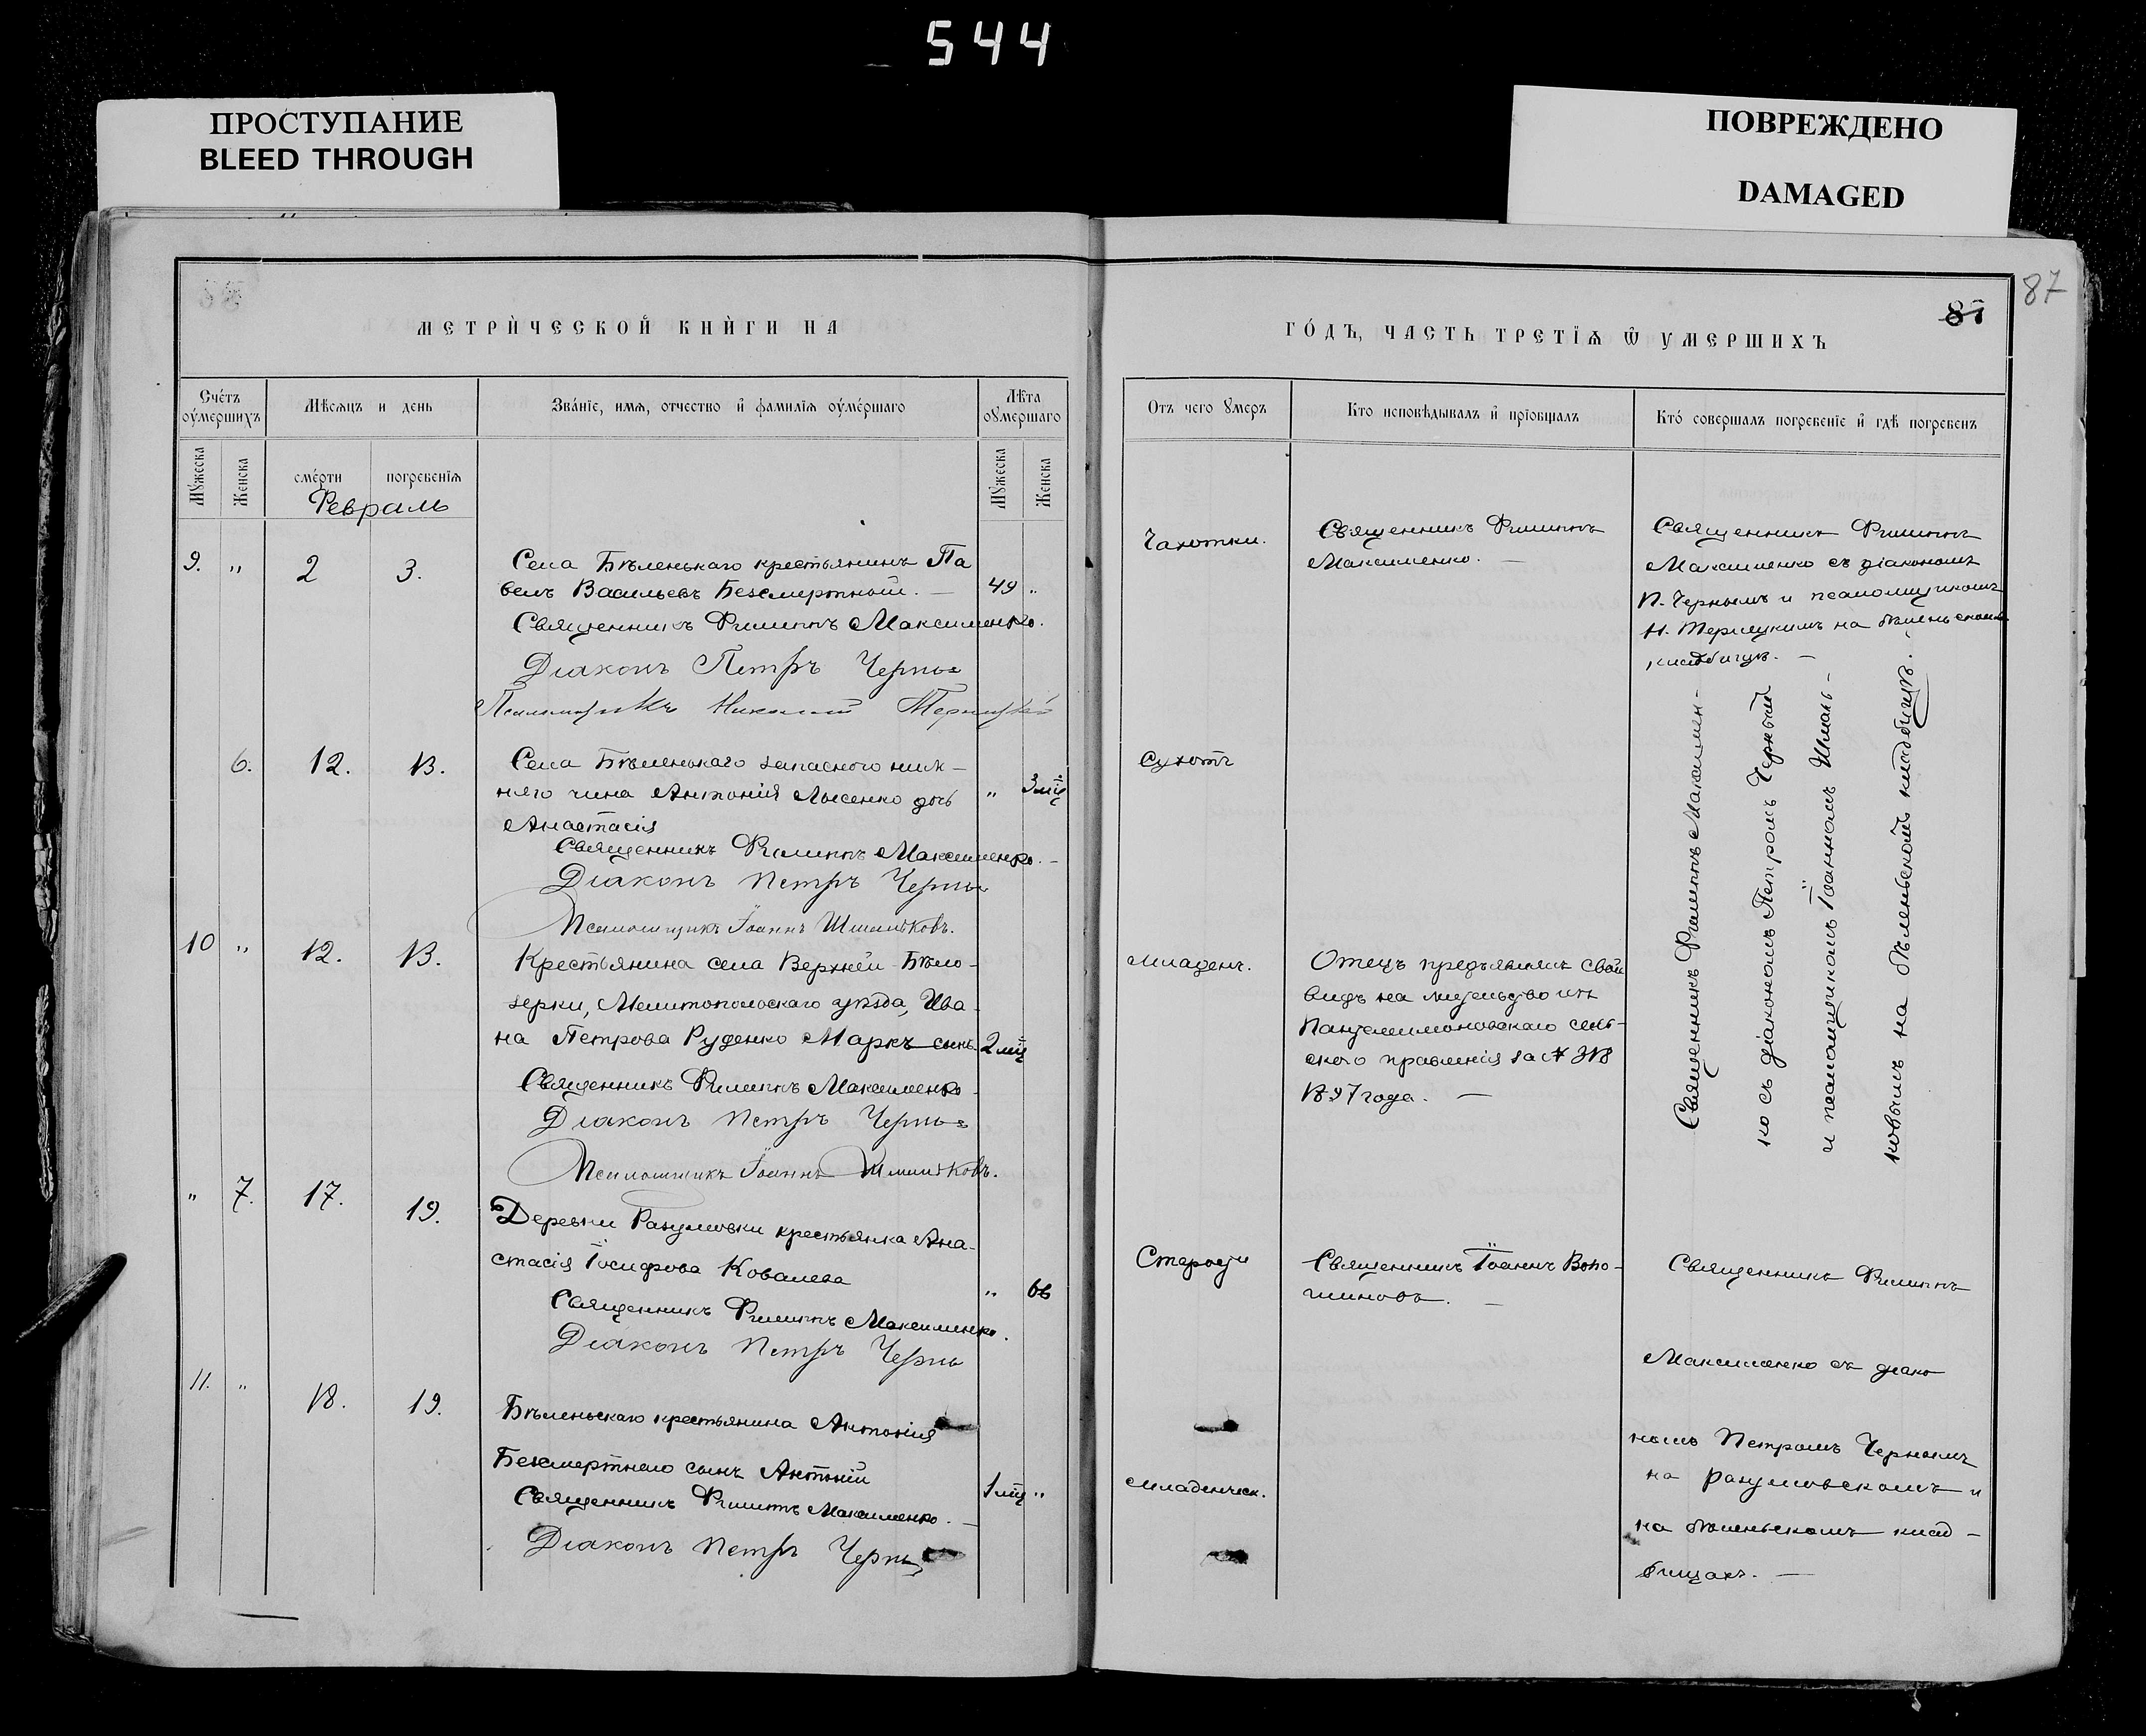 544
ПРОСТУПАНИЕ
BLEED THROUGH
ПОВРЕЖДЕНО
DAMAGED
87
87
МЕТРИ́ЧЕСКОЙ КНИ́ГИ НА
ГО́ДЪ, ЧАСТЬ ТРЕТЇѦ Ѿ УМЕРШИХЪ
Сче́тъ оу҆ме́ршихъ
Мѣсяцъ и день
Зва́нїе, имѧ, отчество и҆ фамилїѧ оу҆ме́ршаго
Лѣта оу҆мершаго
Мꙋжеска
Женска
сме́рти
погребенїѧ
Мꙋжеска
Женска
Отъ чего ꙋмеръ
Кто исповѣдывалъ и҆ прїобщалъ
Кто́ совершалъ погребенїе и҆ гдѣ погребенъ
Февраль
9. " 2 3.
Села Бѣленькаго крестьянинъ Па
велъ Васильевъ Безсмертный. —
49 "
Священникъ Филиппъ Максименко.
Діаконъ Петръ Черны
Псаломщикъ Николай Терлецкій
Чахотки.
Священникъ Филиппъ
Максименко. —
Священникъ Филиппъ
Максименко съ діакономъ
П. Чернымъ и псаломщикомъ
Н. Терлецкимъ на бѣленьскомъ
кладбищѣ. —
6. 12. 13.
Села Бѣленькаго запаснаго ниж-
няго чина Антонія Лысенко дочь
Анастасія
" 3 мц
Священникъ Филиппъ Максименко. —
Діаконъ Петръ Черны
Псаломщикъ Іоаннъ Шмальковъ.
Сухотъ
Священникъ Филиппъ Максимен-
ко съ діакономъ Петромъ Черный
и псаломщикомъ Іоанномъ Шмаль-
ковымъ на Бѣленьскомъ кладбищѣ.
10 " 12. 13.
Крестьянина села Верхней Бѣло-
зерки, Мелитопольскаго уѣзда, Ива-
на Петрова Руденко Маркъ сынъ
2 мц
Священникъ Филиппъ Максименко
Діаконъ Петръ Черны
Псаломщикъ Іоаннъ Шмальковъ.
Младенч.
Отецъ предъявилъ свой
видъ на жительство изъ
Пантелимоновскаго сель-
скаго правленія за № 318
1897 года. —
" 7. 17. 19.
Деревни Разумовки крестьянка Ана-
стасія Іосифова Ковалева
" 66
Священникъ Филиппъ Максименко.
Діаконъ Петръ Черны
Старости
Священникъ Іоаннъ Воло-
шиновъ. —
Священникъ Филиппъ
Максименко съ діако
номъ Петромъ Чернымъ
на разумовскомъ и
на бѣленьскомъ клад-
бищахъ. —
11. " 18. 19.
Бѣленьскаго крестьянина Антонія
Безсмертнаго сынъ Антоній
1 мц "
Священникъ Филиппъ Максименко. —
Діаконъ Петръ Черны
Младенческ.